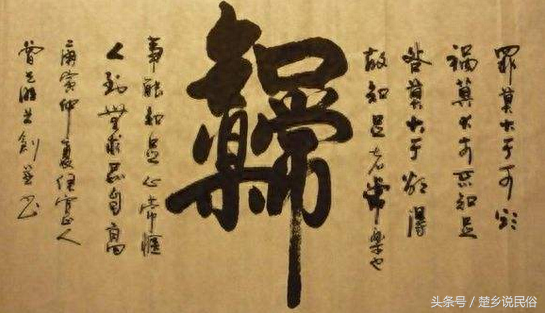 罪莫大于可欲
禍莫大于不知足
咎莫大于欲得
故知足之常樂也
知足常樂
事能知足心常惬
人到無求品自高
庚寅仲夏
头条号 / 楚乡说民俗